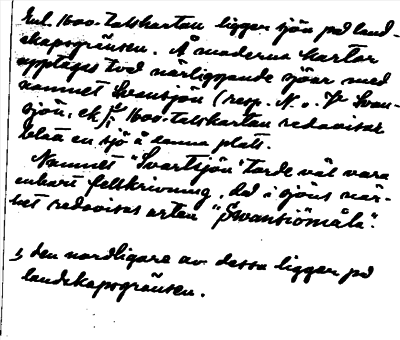 Enl. 1600-talskartan ligger sjön på land-
skapsgränsen. Å moderna kartor
upptages två närliggande sjöar med
namnet Svansjön (resp. N. o. S. Svan-
sjön, ek) 1600-talskartan redovisar
blott en sjö å denna plats.
Namnet "Svartsjön" torde väl vara
enbart felskrivning, då i sjöns när-
het redovisas orten "Swansiömåla".
1) den nordligare av dessa ligger på
landskapsgränsen.